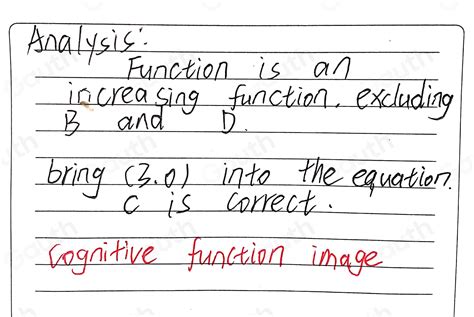 Analysis:
Function is an
increasing function. excluding
B and D.
bring (3.0) into the equation.
C is correct.
Cognitive function image